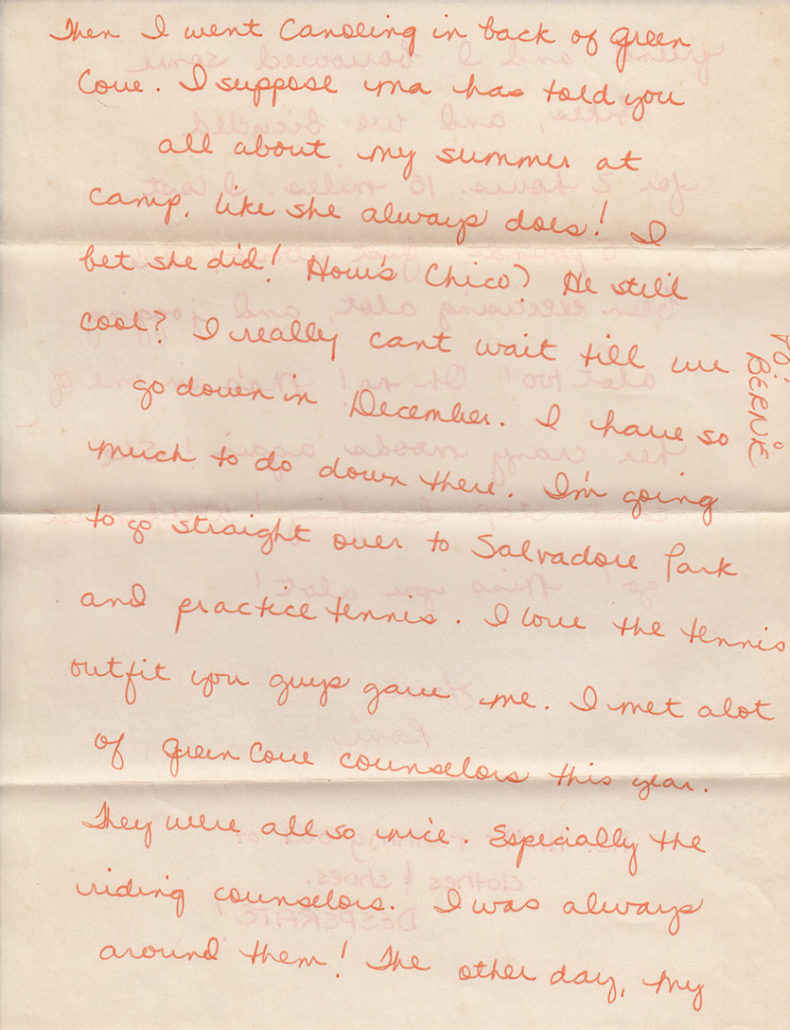 Then I went Canoeing in back of green
Cove. I suppose ma has told you
all about my summer at
camp, like she always does! I
bet she did! How's Chico? He still
cool? I really cant wait till we
go down in December. I have so
much to do down there. I'm going
to go straight over to Salvadore Park
and practice tennis. I love the tennis
outfit you guys gave me. I met alot
of green Cove counselors this year.
They were all so nice. Especially the
riding counselors. I was always
around them! The other day, my
TO:
BERNIE